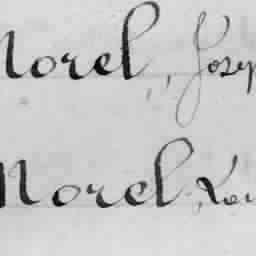 Morel, Josep
Morel, Lou